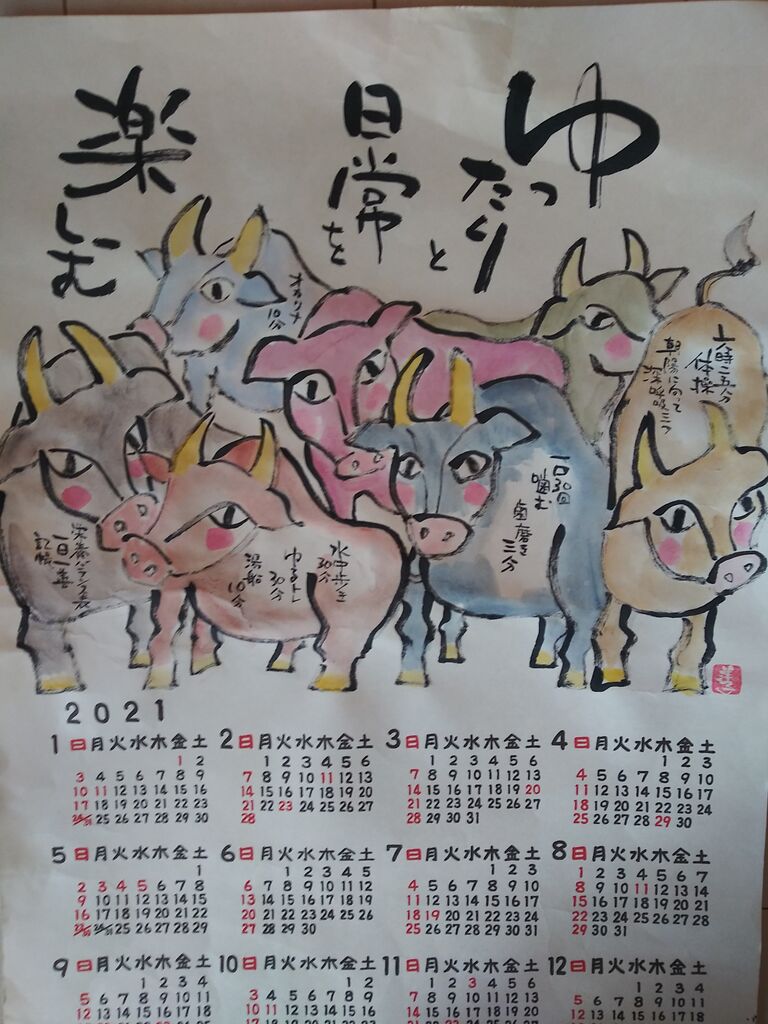 ゆったりと
日常を
楽しむ
オカリナ
10分
六時二五分
体操
朝陽に向って
深呼吸三つ
一口30回
噛む
歯磨き
三分
水中歩き
30分
ゆるトレ
30分
湯船
10分
栄養バランス表
一日一善
記帳
2021
1 日月火水木金土
1 2
3 4 5 6 7 8 9
10 11 12 13 14 15 16
17 18 19 20 21 22 23
24/31 25 26 27 28 29 30
2 日月火水木金土
1 2 3 4 5 6
7 8 9 10 11 12 13
14 15 16 17 18 19 20
21 22 23 24 25 26 27
28
3 日月火水木金土
1 2 3 4 5 6
7 8 9 10 11 12 13
14 15 16 17 18 19 20
21 22 23 24 25 26 27
28 29 30 31
4 日月火水木金土
1 2 3
4 5 6 7 8 9 10
11 12 13 14 15 16 17
18 19 20 21 22 23 24
25 26 27 28 29 30
5 日月火水木金土
1
2 3 4 5 6 7 8
9 10 11 12 13 14 15
16 17 18 19 20 21 22
23/30 24/31 25 26 27 28 29
6 日月火水木金土
1 2 3 4 5
6 7 8 9 10 11 12
13 14 15 16 17 18 19
20 21 22 23 24 25 26
27 28 29 30
7 日月火水木金土
1 2 3
4 5 6 7 8 9 10
11 12 13 14 15 16 17
18 19 20 21 22 23 24
25 26 27 28 29 30 31
8 日月火水木金土
1 2 3 4 5 6 7
8 9 10 11 12 13 14
15 16 17 18 19 20 21
22 23 24 25 26 27 28
29 30 31
9 日月火水木金土
1 2 3 4
5 6 7 8 9 10 11
12 13 14 15 16 17 18
10 日月火水木金土
1 2
3 4 5 6 7 8 9
10 11 12 13 14 15 16
17 18 19 20 21 22 23
11 日月火水木金土
1 2 3 4 5 6
7 8 9 10 11 12 13
14 15 16 17 18 19 20
21 22 23 24 25 26 27
12 日月火水木金土
1 2 3 4
5 6 7 8 9 10 11
12 13 14 15 16 17 18